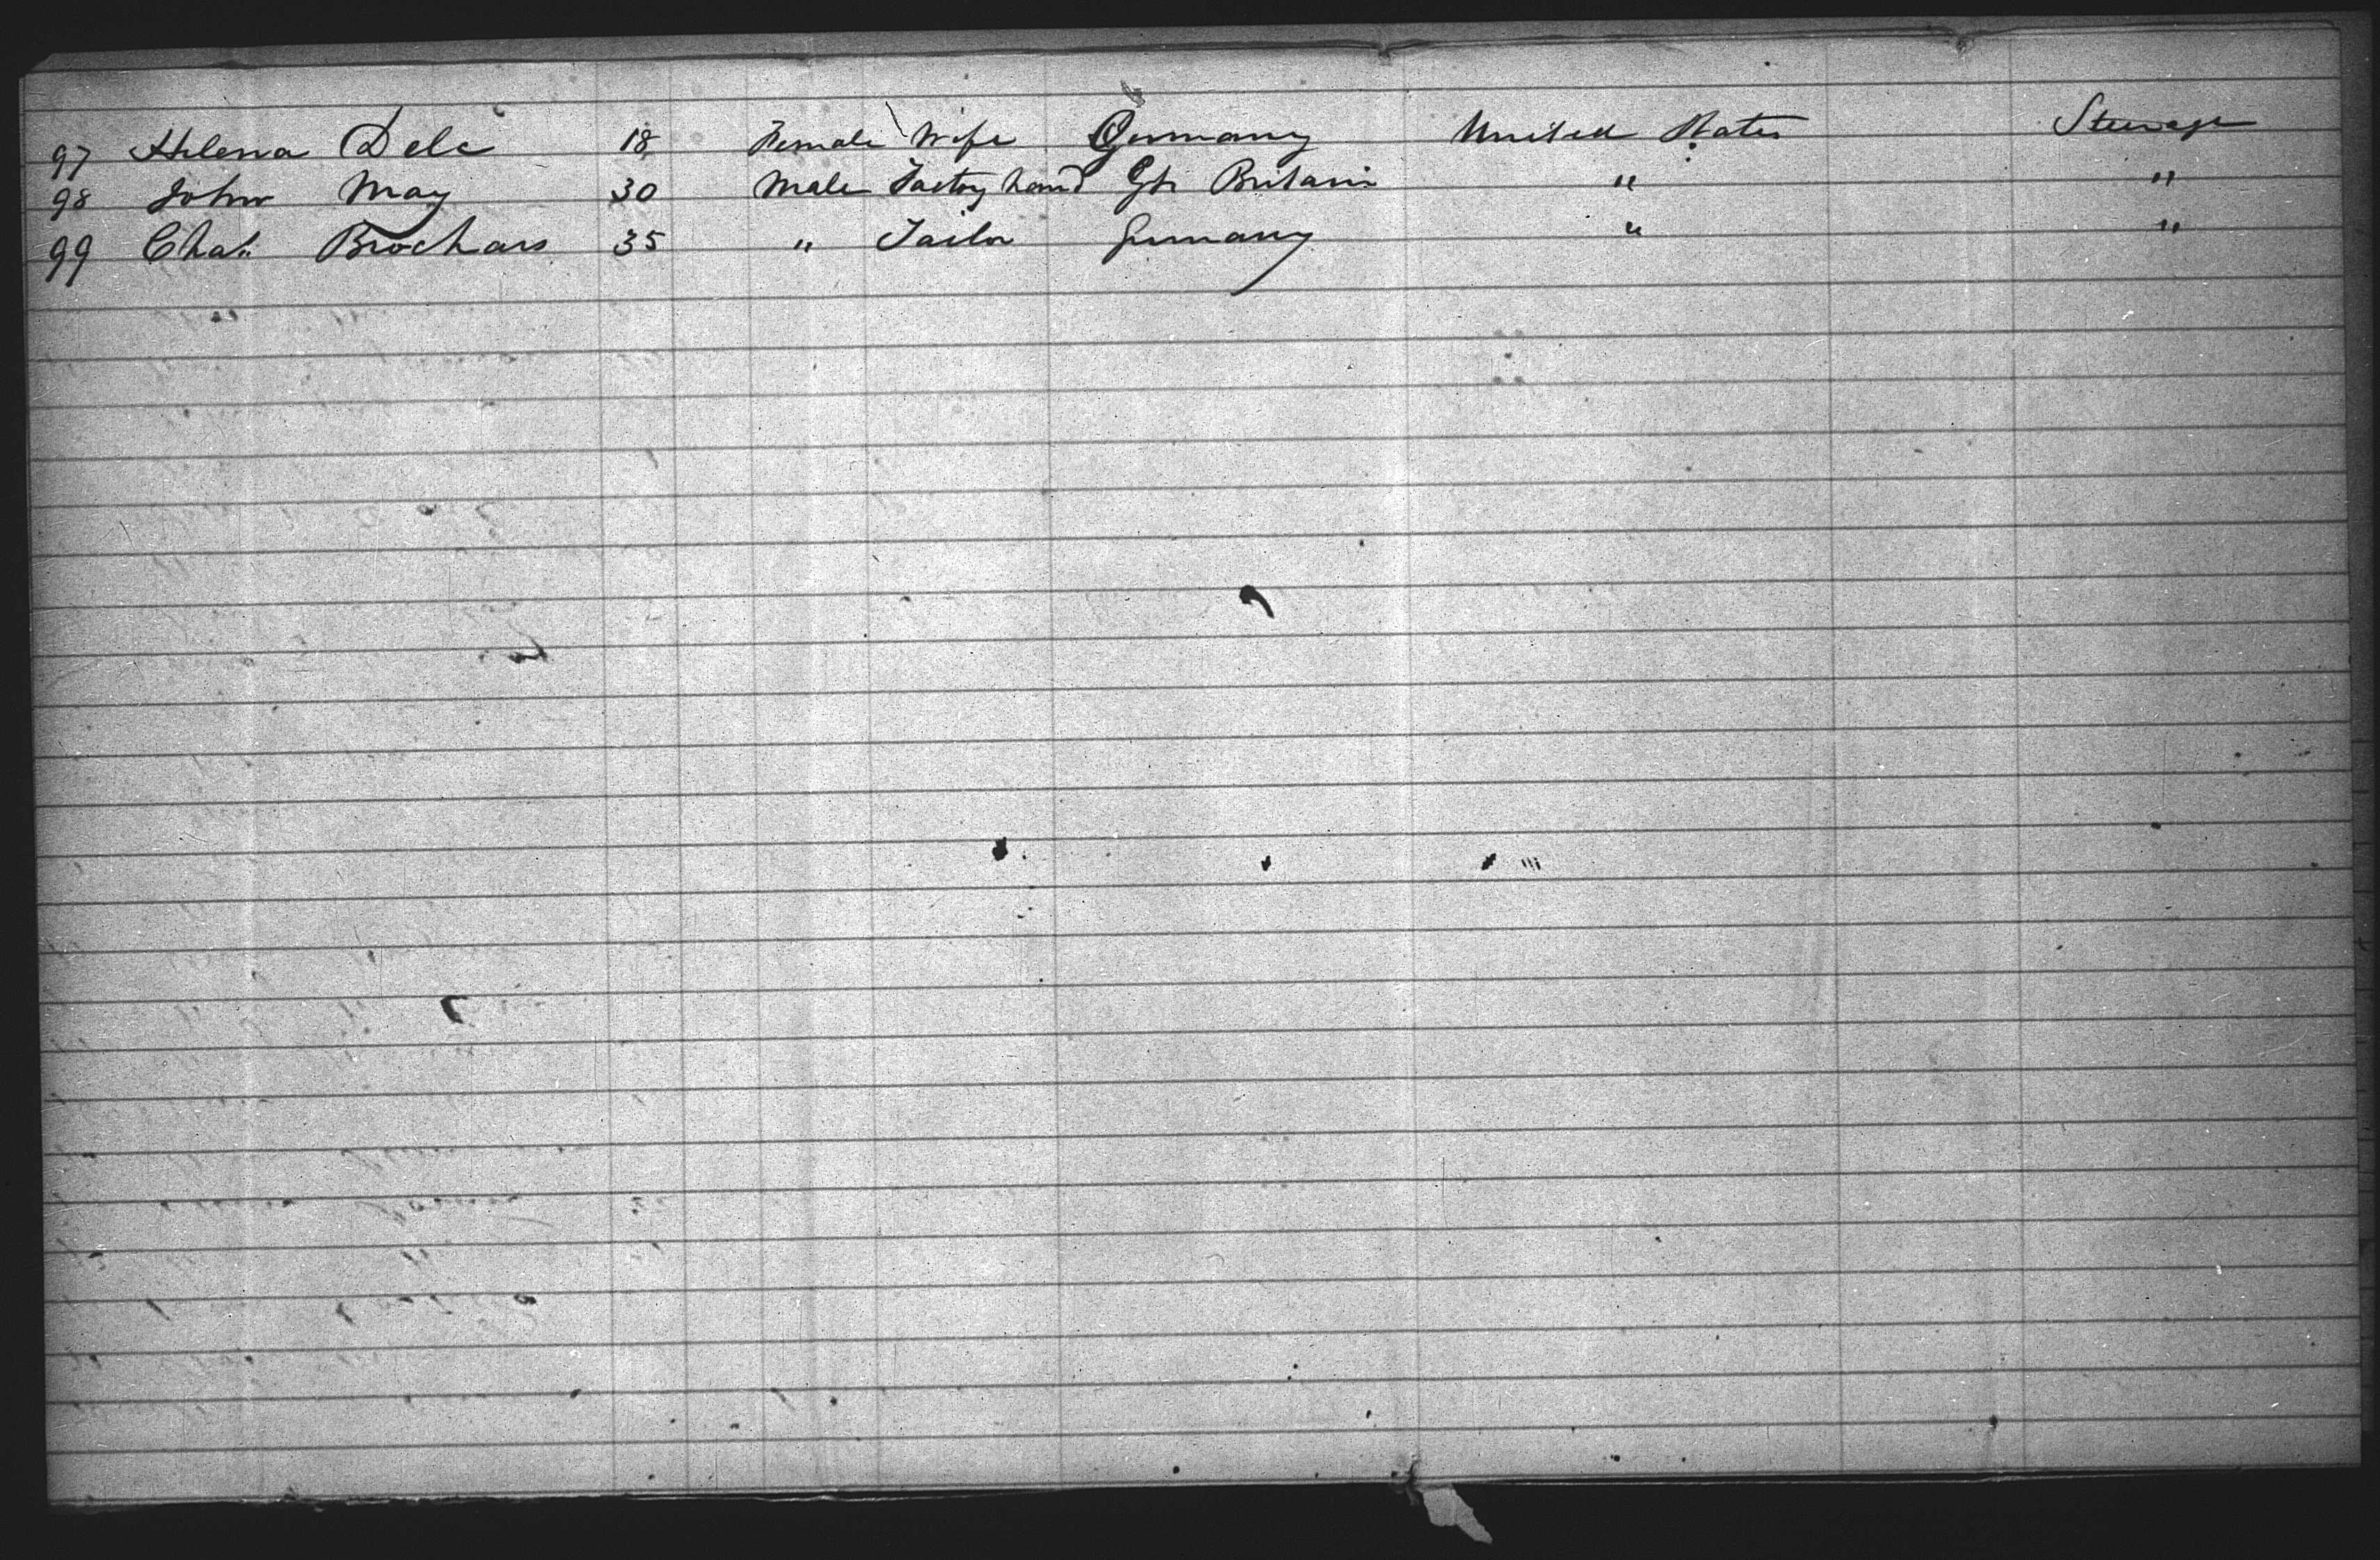 97 Helena Dele 18 Female Wife Germany United States Steerage
98 John May 30 Male Factory hand Gt Britain " "
99 Chas Brochars 35 " Tailor Germany " "